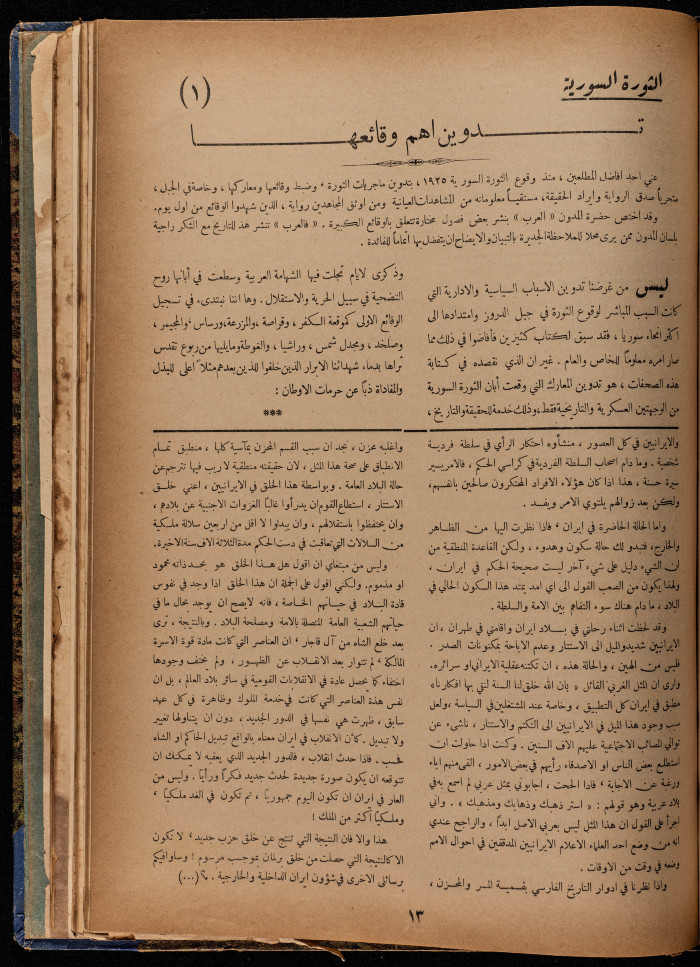 الثورة السورية
(١)
تدوين اهم وقائعها
عني احد افاضل المطلعين ، منذ وقوع الثورة السورية ١٩٢٥ ، بتدوين ماجريات الثورة ، وضبط وقائعها ومعاركها ، وخاصة في الجبل ،
متحرياً صدق الرواية وايراد الحقيقة، مستقياً معلوماته من المشاهدات العيانية ومن اوثق المجاهدين رواية ، الذين شهدوا الوقائع من اول يوم.
وقد اختص حضرة المدون « العرب » بنشر بعض فصول مختارة تتعلق بالوقائع الكبيرة . « فالعرب » تنشر هذ للتاريخ مع الشكر راجية
بلسان المدون ممن يرى محلا للملاحظة الجديرة بالتبيان والايضاح ان يتفضل بها اتماماً للفائدة .
ليس من غرضنا تدوين الاسباب السياسية والادارية التي
كانت السبب المباشر لوقوع الثورة في جبل الدروز وامتدادها الى
اكثر انحاء سوريا ، فقد سبق لكتاب كثيرين فأفاضوا في ذلك مما
صار امره معلوماً للخاص والعام . غير ان الذي نقصده في كتابة
هذه الصفحات ، هو تدوين المعارك التي وقعت أبان الثورة السورية
من الوجهتين العسكرية والتاريخية فقط، وذلك خدمة للحقيقة والتاريخ،
وذكرى لايام تجلت فيها الشهامة العربية وسطعت في أبانها روح
التضحية في سبيل الحرية والاستقلال . وها اننا نبتدىء في تسجيل
الوقائع الاولى كموقعة الكفر ، وقراصة ،والمزرعة،ورساس ،والمجيمر ،
وصلخد ، ومجدل شمس ، وراشيا ، والغوطة ومايليها من ربوع تقدس
ثراها بدماء شهدائنا الابرار الذين خلفوا للذين بعدهم مثلاً اعلى للبذل
والمفاداة ذباً عن حرمات الاوطان :
***
والايرانيين في كل العصور ، منشأوه احتكار الرأي في سلطة فردية
شخصية . وما دام اصحاب السلطة الفردية في كراسي الحكم ، فالامر يسير
سيرة حسنة ، هذا اذا كان هؤلاء الافراد المحتكرون صالحين بانفسهم،
ولكن بعد زوالهم يلتوي الامر ويفسد .
واما الحالة الحاضرة في ايران ، فاذا نظرت اليها من الظاهر
والخارج، فتبدو لك حالة سكون وهدوء ، ولكن القاعدة المنطقية من
ان الشيء دليل على شيء آخر ليست صحيحة الحكم في ايران ،
ولهذا يكون من الصعب القول الى اي امد يمتد هذا السكون الحالي في
البلاد ، ما دام هناك سوء التفاهم بين الامة والسلطة .
وقد لحظت اثناء رحلتي في بلاد ايران واقامتي في طهران ، ان
الايرانيين شديدو الميل الى الاستتار وعدم الاباحة بمكنونات الصدر .
فليس من الهين ، والحالة هذه ، ان تكتنه عقلية الايراني او سرائره.
وارى ان المثل الغربي القائل « بان الله خلق لنا السنة لنخبي بها افكارنا»
مطبق في ايران كل التطبيق ، وخاصة عند المشتغلين في السياسة ،ولعل
سبب وجود هذا الميل في الايرانيين الى التكتم والاستتار ، ناشيء عن
توالي المصائب الاجتماعية عليهم الاف السنين . وكنت اذا حاولت ان
استطلع بعض الناس او الاصدقاء رأيهم في بعض الامور ، القى منهم اباء
ورغبة عن الاجابة ، فاذا الححت ، اجابوني بمثل عربي لم اسمع به في
بلاد عربية وهو قولهم : « استر ذهبك وذهابك ومذهبك » . واني
اجرأ على القول ان هذا المثل ليس بعربي الاصل ابداً ، والراجح عندي
انه من وضع احد العلماء الاعلام الايرانيين المدققين في احوال الامم
وضعه في وقت من الاوقات .
واذا نظرنا في ادوار التاريخ الفارسي بقسميه المسر والمحزن ،
واغلبه محزن ، نجد ان سبب القسم المحزن بمآسيه كلها ، منطبق تمام
الانطباق على صحة هذا المثل ، لان حقيقته منطقية لاريب فيها تترجم عن
حالة البلاد العامة . وبواسطة هذا الخلق في الايرانيين ، اعني خلق
الاستتار ، استطاع القوم ان يدرأوا غالباً الغزوات الاجنبية عن بلادهم ،
وان يحتفظوا باستقلالهم ، وان يبدلوا لا اقل من اربعين سلالة ملكية
من السلالات التي تعاقبت في دست الحكم مدة الثلاثة الاف سنة الاخيرة.
وليس من مبتغاي ان اقول هل هذا الخلق هو بحد ذاته محمود
او مذموم. ولكني اقول على الجملة ان هذا الخلق اذا وجد في نفوس
قادة البلاد في حياتهم الخاصة ، فانه لايصح ان يوجد بحال ما في
حياتهم الشعبية العامة المتصلة بالامة ومصلحة البلاد . وبالنتيجة ، نرى
بعد خلع الشاه من آل قاجار ، ان العناصر التي كانت مادة قوة الاسرة
المالكة ، لم تتوار بعد الانقلاب عن الظهور ، ولم يختف وجودها
اختفاء كما يحصل عادة في الانقلابات القومية في سائر بلاد العالم ، بل ان
نفس هذه العناصر التي كانت في خدمة الملوك وظاهرة في كل عهد
سابق ، ظهرت هي نفسها في الدور الجديد ، دون ان يتناولها تغيير
ولا تبديل . كأن الانقلاب في ايران معناه بالواقع تبديل الحاكم او الشاه
فحسب . فاذا حدث انقلاب ، فالدور الجديد الذي يعقبه لا يمكنك ان
تتوقعه ان يكون صورة جديدة لحدث جديد فكراً ورأياً . وليس من
العار في ايران ان تكون اليوم جمهورياً ، ثم تكون في الغد ملكياً ،
وملكياً اكثر من الملك !
هذا والا فان النتيجة التي تنتج عن خلق حزب جديد ، لا تكون
الا كالنتيجة التي حصلت من خلق برلمان بموجب مرسوم ! وساوافيكم
برسائلي الاخرى في شؤون ايران الداخلية والخارجية . (...)
١٣